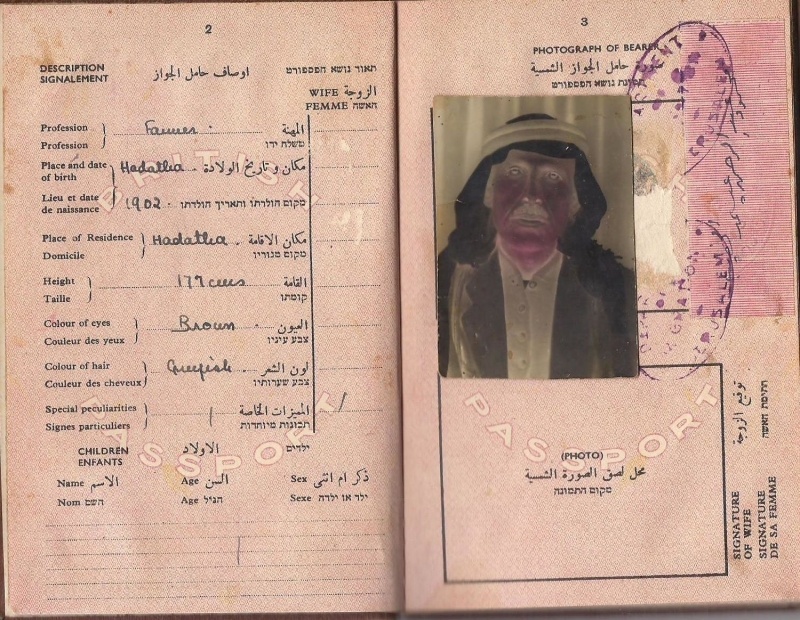 2
DESCRIPTION
SIGNALEMENT
اوصاف حامل الجواز
תאור נושא הפספורט
WIFE الزوجة
FEMME האשה
Profession
Profession
Farmer.
المهنة
משלח ידו
Place and date
of birth
Hadatha
مكان و تاريخ الولادة
Lieu et date
de naissance
1902.
מקום הולדתו ותאריך הולדתו
Place of Residence
Domicile
Hadatha.
مكان الاقامة
מקום מגוריו
Height
Taille
177 cms
القامة
קומתו
Colour of eyes
Couleur des yeux
Brown
العيون
צבע עיניו
Colour of hair
Couleur des cheveux
Greyish
لون الشعر
צבע שערותיו
Special peculiarities
Signes particuliers
المميزات الخاصة
תכונות מיוחדות
CHILDREN
ENFANTS
الاولاد
ילדים
Name الاسم
Age السن
Sex ذكر ام انثى
Nom השם
Age הגיל
Sexe ילד או ילדה
BRITISH
PASSPORT
3
PHOTOGRAPH OF BEARER
حامل الجواز الشمسية
תמונת נושא הפספורט
JERUSALEM
JERUSALEM
PASSPORT
(PHOTO)
محل لصق الصورة الشمسية
מקום התמונה
توقيع الزوجة
חתימת האשה
SIGNATURE
OF WIFE
SIGNATURE
DE SA FEMME